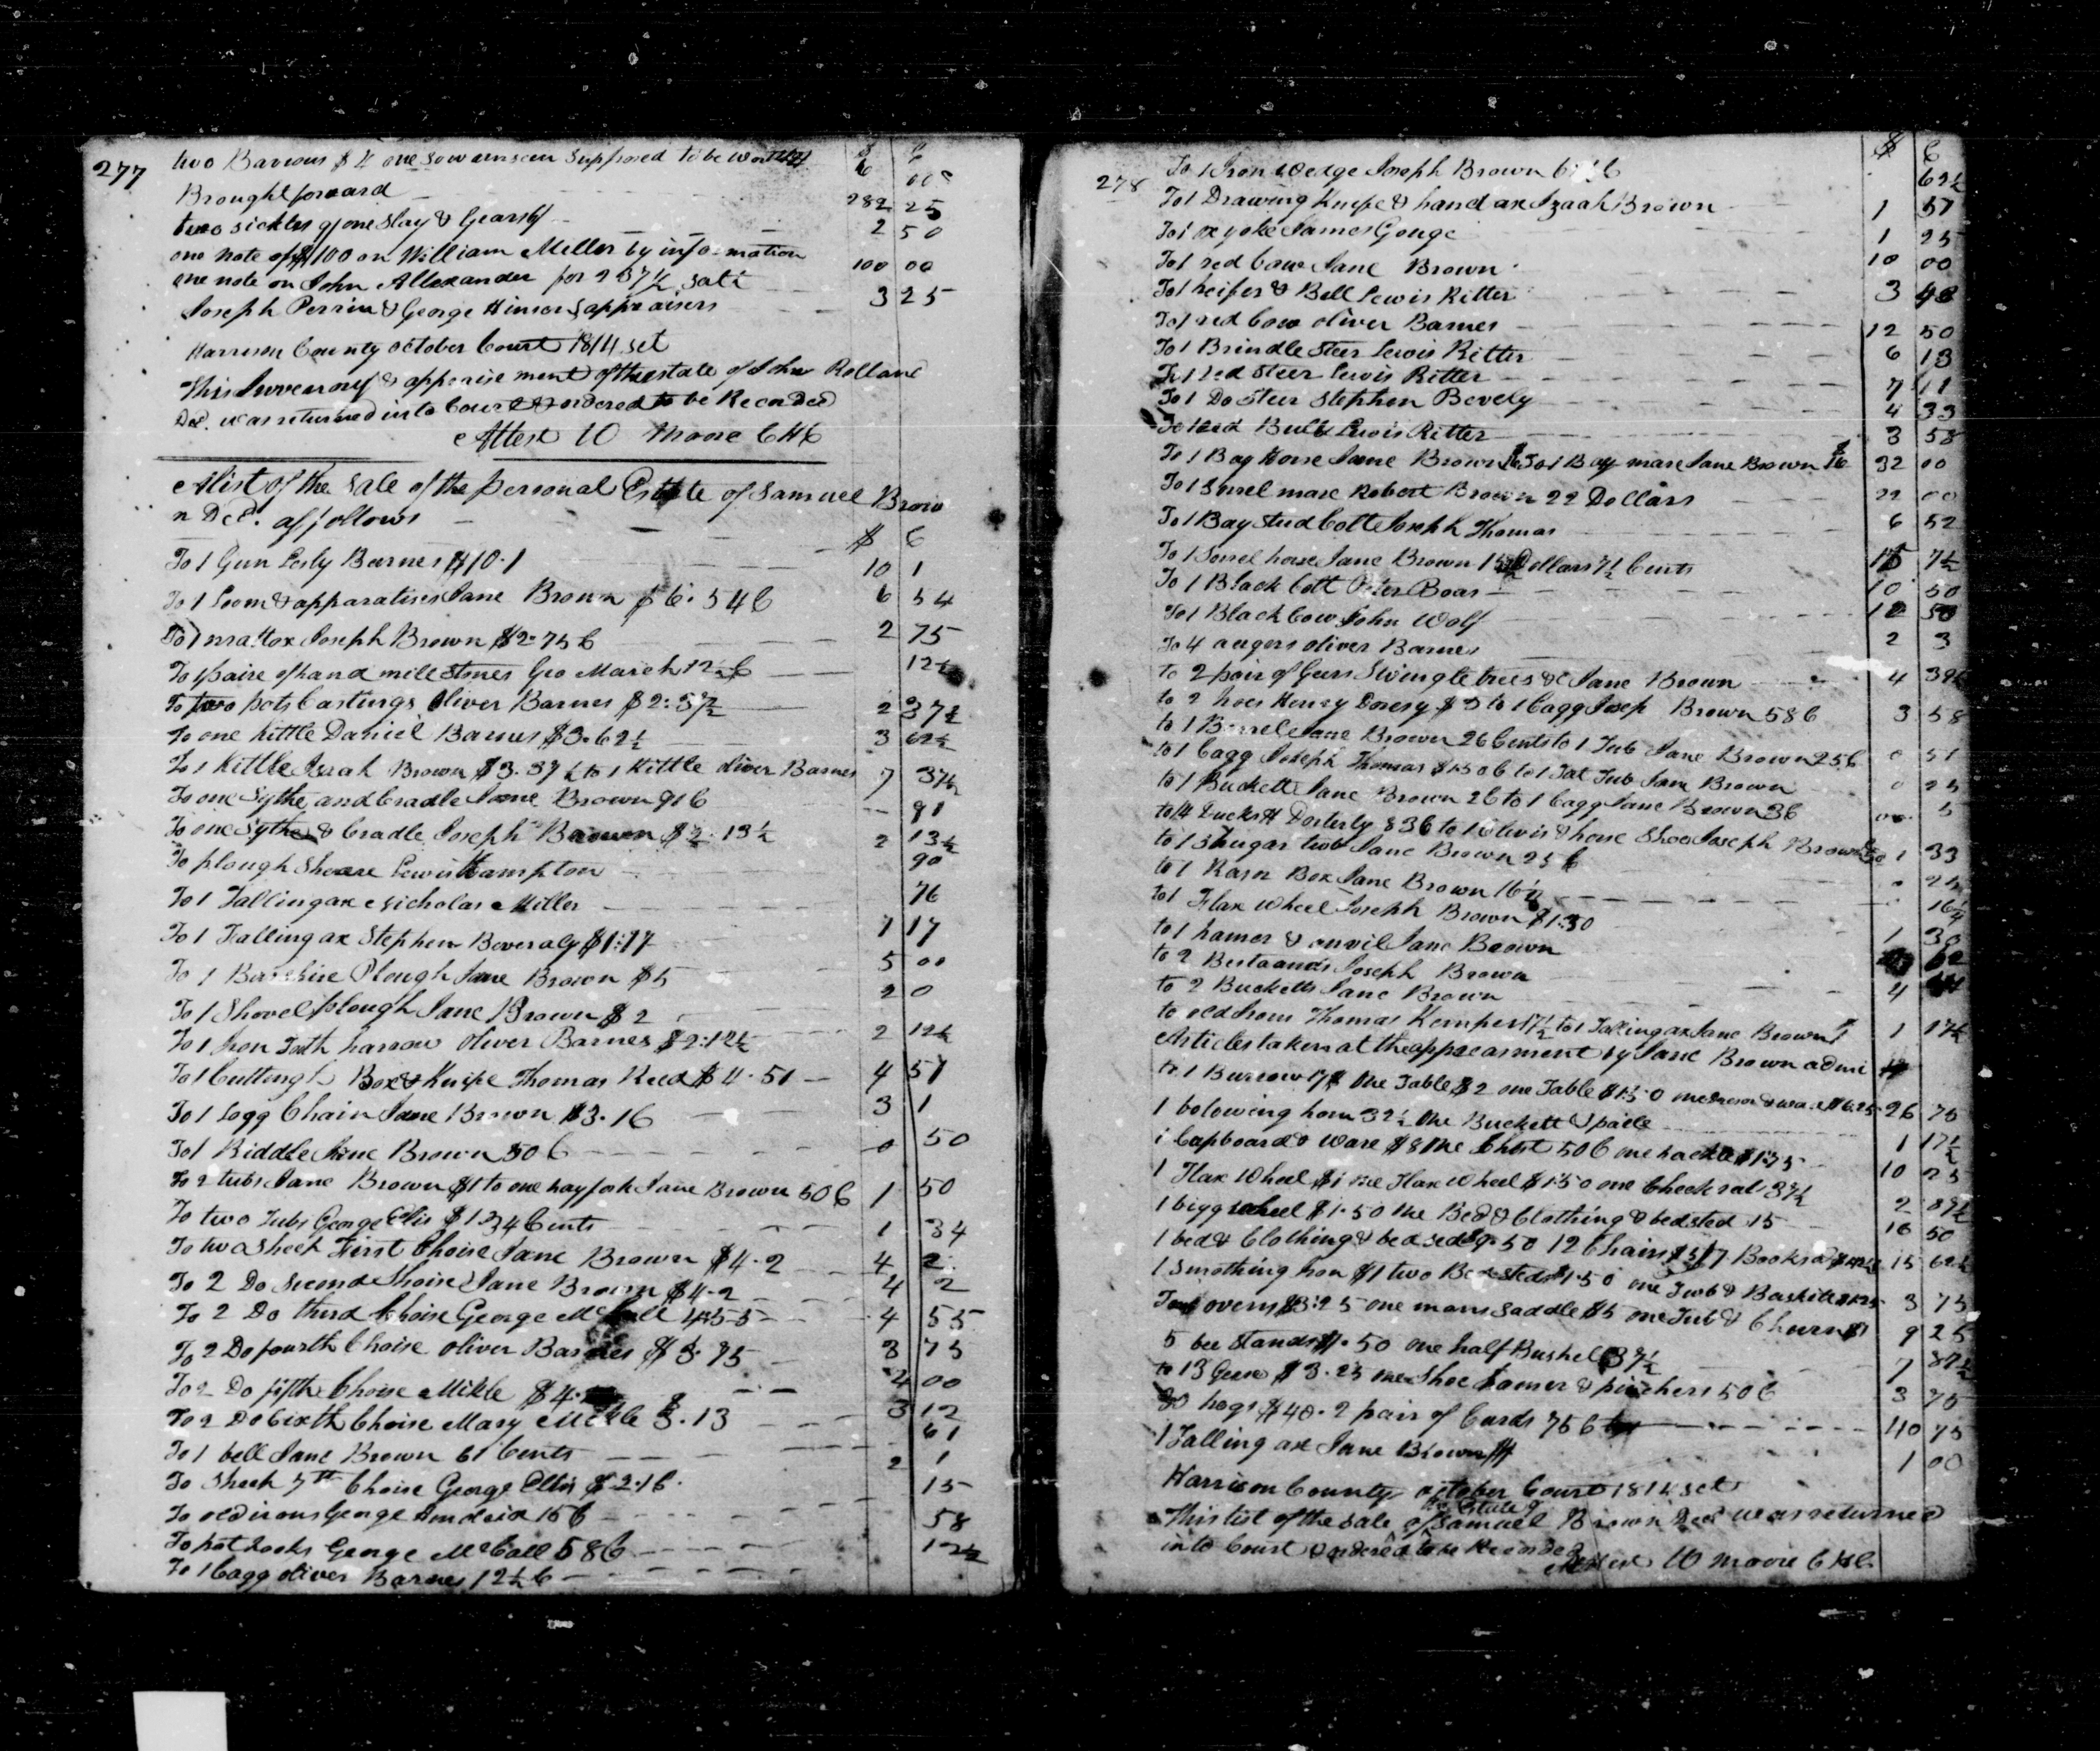 277
two Barrows $4 one sow unseen supposed to be worth $2 6 00
Brought forward 282 25
two sickles 9/ one Slay & Gears 6/ 2 50
one note of $100 on William Miller by information 100 00
one note on John Allexander for salt 3 25
Joseph Perrin & George Hinson appraisers
Harrison County October Court 1814 Sct
This Inventory & appraisement of the estate of John Rolland
Decd. was returned into Court & ordered to be Recorded
Attest W Moore C H C
A list of the Sale of the personal Estate of Samuel Brow
n Decd. as follows
$ C
To 1 Gun Lesly Barnes $10.1 10 1
To 1 Loom & apparatises Jane Brown $6.54C 6 54
To 1 mattox Joseph Brown $2.75C 2 75
To 1 paire of hand mill stones Geo March 12½C 12½
To two pots Castings Oliver Barnes $2:37½ 2 37½
To one Kittle Daniel Barnes $3.62½ 3 62½
To 1 Kittle Israh Brown $3.37½ to 1 Kittle oliver Barnes 7 37½
To one Sythe and Cradle Jane Brown 91C 91
To one Sythe & Cradle Joseph Brown $2.13½ 2 13½
To plough Sheare Lewis Hampton 90
To 1 Falling ax Nicholas Miller 76
To 1 Falling ax Stephen Beveraly $1:17 1 17
To 1 Barshire Plough Jane Brown $5 5 00
To 1 Shovel plough Jane Brown $2 2 0
To 1 Iron Tooth harrow Oliver Barnes $2:12½ 2 12½
To 1 Cutting Box & Knife Thomas Reed $4.51 4 51
To 1 Logg Chain Jane Brown $3.16 3 1
To 1 Riddle Jane Brown 50C 0 50
To 2 tubs Jane Brown $1 to one hay fork Jane Brown 50C 1 50
To two Tubs George Ellis $1.34 Cents 1 34
To two Sheep First Choise Jane Brown $4.2 4 2
To 2 Do Second Choise Jane Brown $4.2 4 2
To 2 Do third Choise George McCall 4.55 4 55
To 2 Do fourth Choise Oliver Barnes $3.75 3 75
To 2 Do fifth Choise Mikle $4. 4 00
To 2 Do Sixth Choise Mary Mickle $3.13 3 12
To 1 bell Jane Brown 61 Cents 61
To Sheep 7th Choise George Ellis $2.16. 2 1
To old irons George 15C 15
To pot hooks George McCall 58C 58
To 1 Cagg Oliver Barnes 12½C 12½
278
$ C
To 1 Iron Wedge Joseph Brown 62½
To 1 Drawing Knife & hand ax Izaah Brown 1 57
To 1 ox yoke James Gouge 1 25
To 1 red Cow Jane Brown 10 00
To 1 heifer & Bell Lewis Ritter 3 48
To 1 red Cow oliver Barnes 12 50
To 1 Brindle Steer Lewis Ritter 6 13
To 1 red Steer Lewis Ritter 7 11
To 1 Do Steer Stephen Bevely 4 33
To 1 red Bull Lewis Ritter 3 58
To 1 Bay Horse Jane Brown $16 To 1 Bay mare Jane Brown $16 32 00
To 1 Sorrel mare Robert Brown 22 Dollars 22 00
To 1 Bay Stud Colt Joseph Thomas 6 52
To 1 Sorrel horse Jane Brown 15 Dollars 7½ Cents 15 7½
To 1 Black Colt Peter Boar 10 50
To 1 Black Cow John Wolf 12 50
To 4 augers oliver Barnes 2 3
to 2 pair of Geers Swingletrees &c Jane Brown 4
to 2 hoes Henry $3 to 1 Cagg Josep Brown 58C 3 58
to 1 Barrel Jane Brown 26 Cents to 1 Tub Jane Brown 25C 0 51
to 1 Cagg Joseph Thomas to 1 Fat Tub Jane Brown 0 25
to 1 Buckett Jane Brown 2C to 1 Cagg Jane Brown 3C 5
to 14 Ducks H 83C to 1 Clevis & horse Shoes Joseph Brown 50 1 33
to 1 Shugar trof Jane Brown 25C 25
to 1 Rasor Box Jane Brown 16½
to 1 Flax Wheel Joseph Brown $1.30 1 30
to 1 hamer & anvil Jane Brown
to 2 Joseph Brown 4
to 2 Bucketts Jane Brown
to old Irons Thomas Kemper 17½ to 1 Falling ax Jane Brown $1 1 17½
Articles taken at the appreasment by Jane Brown admi
to 1 Burrow 17$ One Table $2 one Table $1.50 one & ware $6.25 26 75
1 bolowing horn 32½ One Buckett & paile 1 17½
1 Capboard & Ware $8 One Chest 50C one hackle $1.75 10 25
1 Flax Wheel $1 one Flax Wheel $1.50 one Check real 37½ 2 87½
1 bigg wheel $1.50 One Bed & Clothing & bedsted 15 16 50
1 bed & Clothing & bedsted $9.50 12 Chairs 7 Books 15 62½
1 Smothing Iron $1 two Bedsteds $1.50 one Tub & Baskite $1.25 3 75
ovens $3:25 one mans Saddle $5 one Tub & Churn $1 9 25
5 bee Stands $7.50 one half Bushel 37½ 7 87½
to 13 Geese $3.25 one Shoe hamer & pinchers 50C 3 75
30 hogs $40.2 pair of Cards 75C 40 75
1 Falling ax Jane Brown $1 1 00
Harrison County October Court 1814 Sct
This list of the Sale of the Estate of Samuel Brown Decd was returned
into Court & ordered to be Recorded
Attest W Moore C H C